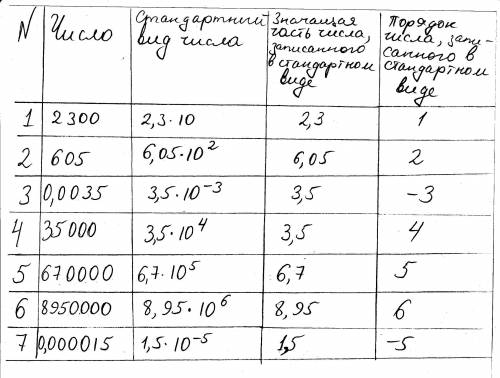 N Число Стандартный вид числа Значащая часть числа, записанного в стандартном виде Порядок числа, запи-санного в стандартном виде
1 2300 2,3·10 2,3 1
2 605 6,05·10² 6,05 2
3 0,0035 3,5·10⁻³ 3,5 -3
4 35000 3,5·10⁴ 3,5 4
5 670000 6,7·10⁵ 6,7 5
6 8950000 8,95·10⁶ 8,95 6
7 0,000015 1,5·10⁻⁵ 1,5 -5